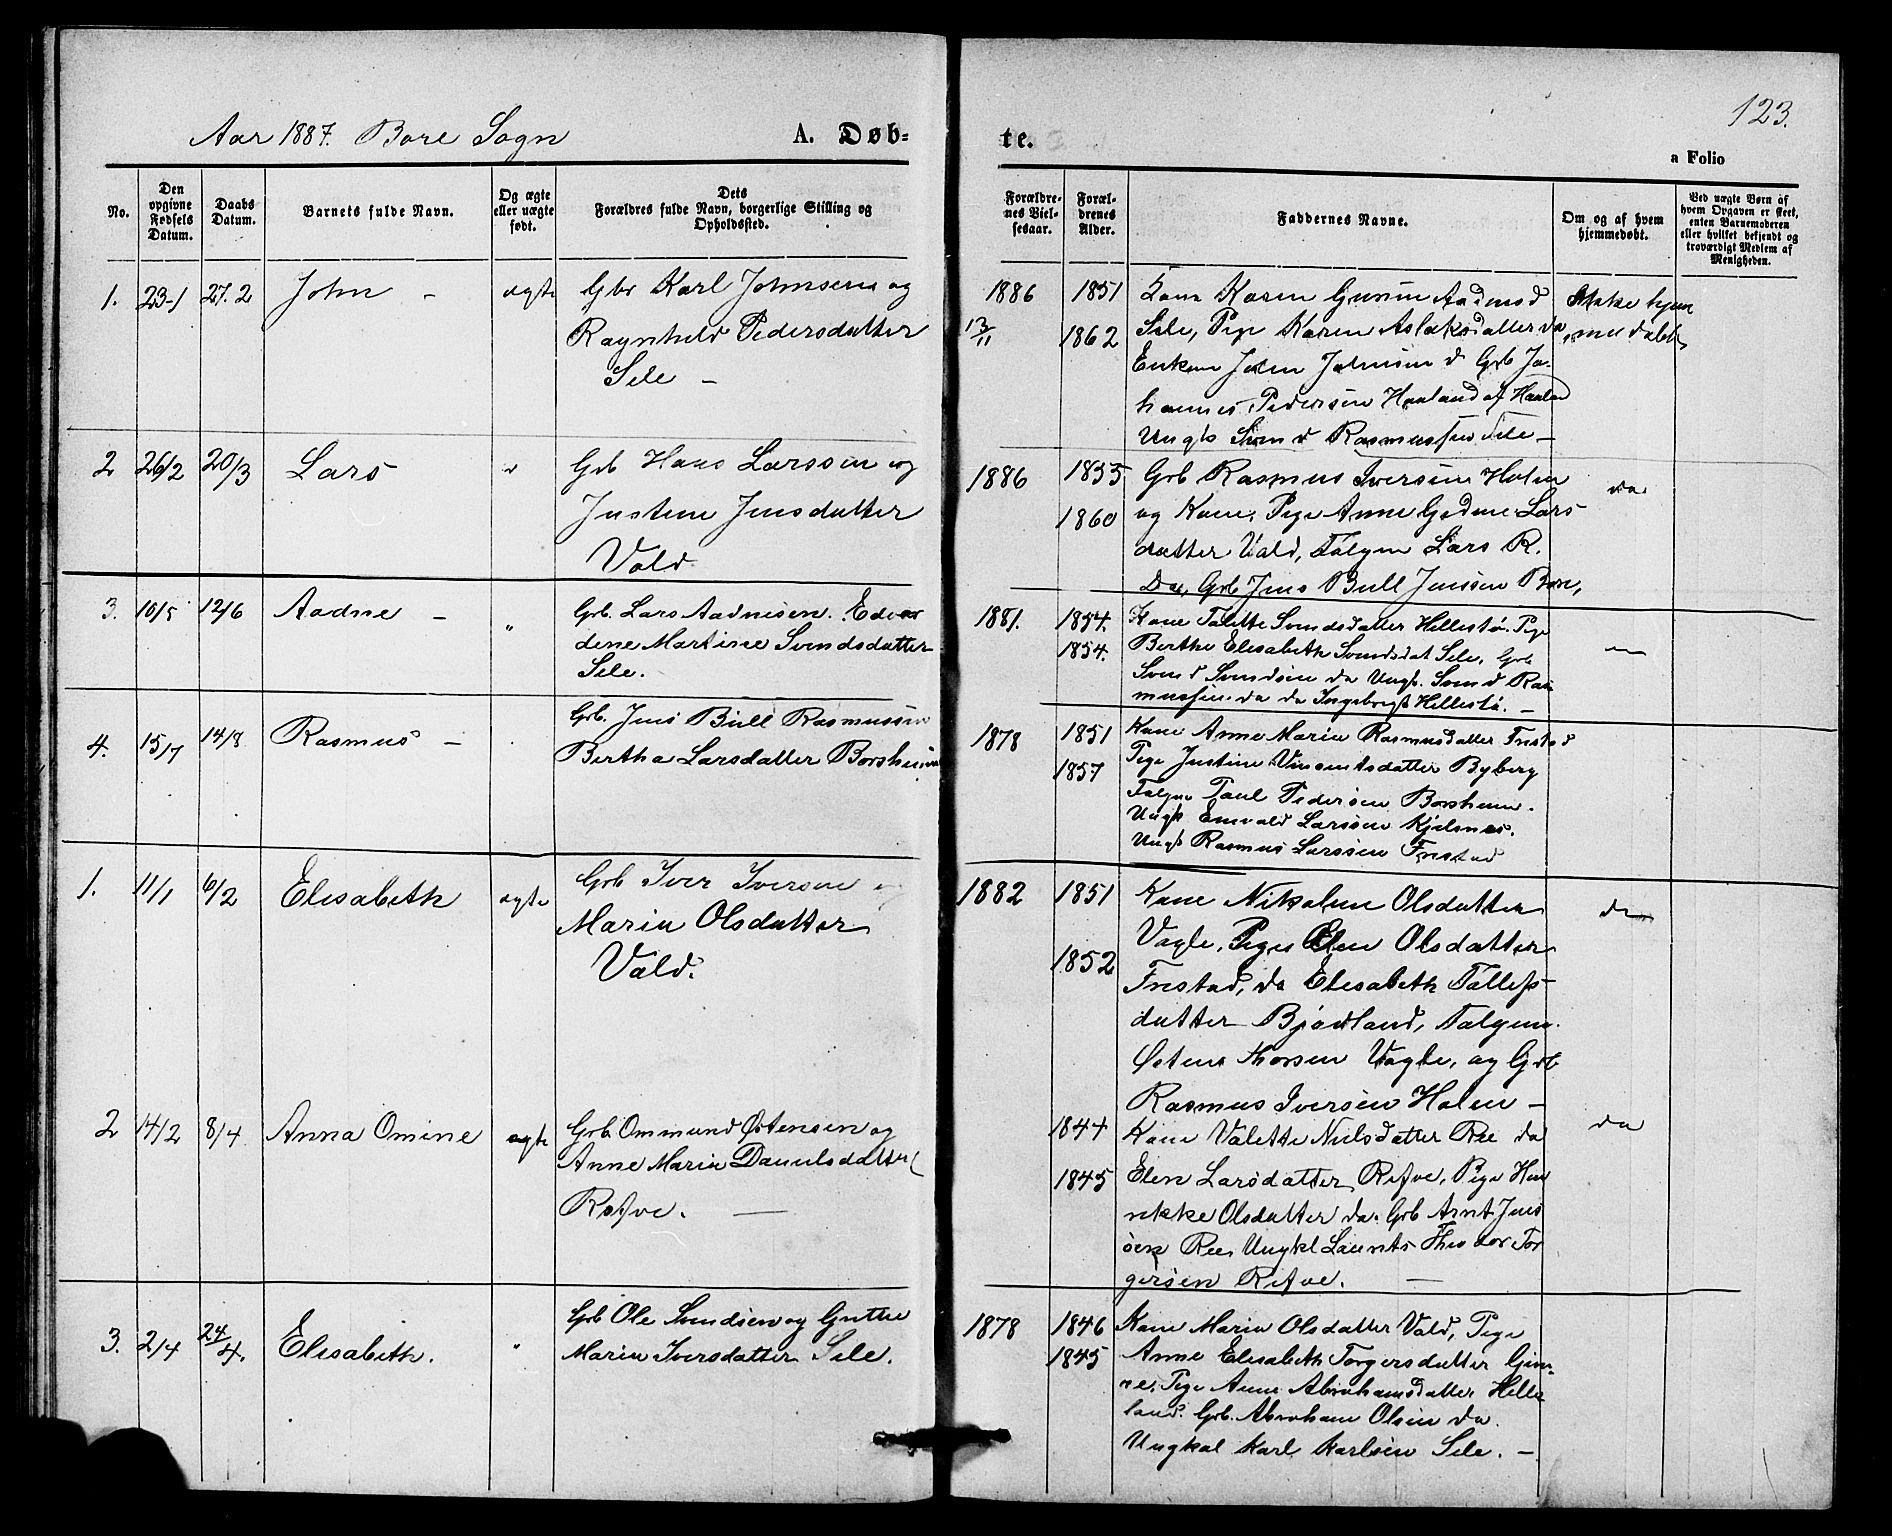 Aar 1887. Bore Sogn
A. Døb-
te.
123.
a Folio
No.
Den opgivne Fødsels Datum.
Daabs Datum.
Barnets fulde Navn.
Og ægte eller uægte født.
Dets Forældres fulde Navn, borgerlige Stilling og Opholdssted.
Forældrenes Vielsesaar.
Forældrenes Alder.
Faddernes Navne.
Om og af hvem hjemmedøbt.
Ved uægte Børn af hvem Opgaven er skeet, enten Barnemoderen eller hvilket bekjendt og troværdigt Medlem af Menigheden.
1. 23-1 27.2 John - ægte Gbr Karl Johnsen og
Ragnhild Pedersdatter
Sele -
1886 13/11
1851
1862
Kone Karen Gurine Aadnesd
Sele, Pige Karen Aslaksdatter do
Enkem John Johnsen d Grb Jo-
hannes Pedersen Haaland af Haaland
Ungk Svend Rasmussen Sele -
Ikke hjem
medøbt
2 26/2 20/3 Lars " Grb Hans Larssen og
Justine Jensdatter
Vold
1886
1855
1860
Grb Rasmus Iversen Holen
og Kone, Pige Anne Gurine Lars
datter Vold, Følgem Lars R.
Do, Grb Jens Bull Jenssen Bore,
do
3. 10/5 12/6 Aadne - " Grb. Lars Aadnesen. Edvar
dene Martine Svendsdatter
Sele.
1881.
1854.
1854.
Kone Talette Svendsdatter Hellestø. Pige
Berthe Elisabeth Svendsdat Sele, Grb
Svend Svendsen do Ungk. Svend Ras
mussen do do Ingebregt Hellestø. -
4. 15/7 14/8 Rasmus - Grb. Jens Bull Rasmussen
Bertha Larsdatter Borsheim
1878
1851
1857
Kone Anne Maria Rasmusdatter Friestad
Pige Justine Vincentsdatter Byberg
Følgm Paul Pedersen Borsheim.
Ungk Enevald Larssen Kjelsnes.
Ungk Rasmus Larssen Friestad
1. 11/1 6/2 Elisabeth ægte Grb Iver Iversen og
Maria Olsdatter
Vold.
1882
1851
1852
Kone Nikoline Olsdatter
Vagle, Pige Elen Olsdatter
Friestad, do Elisabeth Tollefs-
datter Bjødland, Følgem.
Østen Thorsen Vagle, og Grb
Rasmus Iversen Holen -
do
2 14/2 8/4 Anna Omine ægte Grb Ommund Østensen og
Anne Maria Danielsdatter
Refve. -
1844
1845
Kone Valette Nielsdatter Ree do
Elen Larsdatter Refve, Pige Hen
rikke Olsdatter do. Grb Arnt Jens
sen Ree, Ungkl Laurits Theodor Tor
gersen Refve. -
do
3. 2/4 24/4. Elisabeth. " Grb Ole Svendsen og Gurine
Maria Iversdatter Sele.
1878
1846
1845
Kone Maria Olsdatter Vold, Pige
Anne Elisabeth Torgersdatter Gim
re, Pige Anne Abrahamsdatter Helle
land. Grb. Abraham Olsen do.
Ungkal Karl Karlsen Sele. -